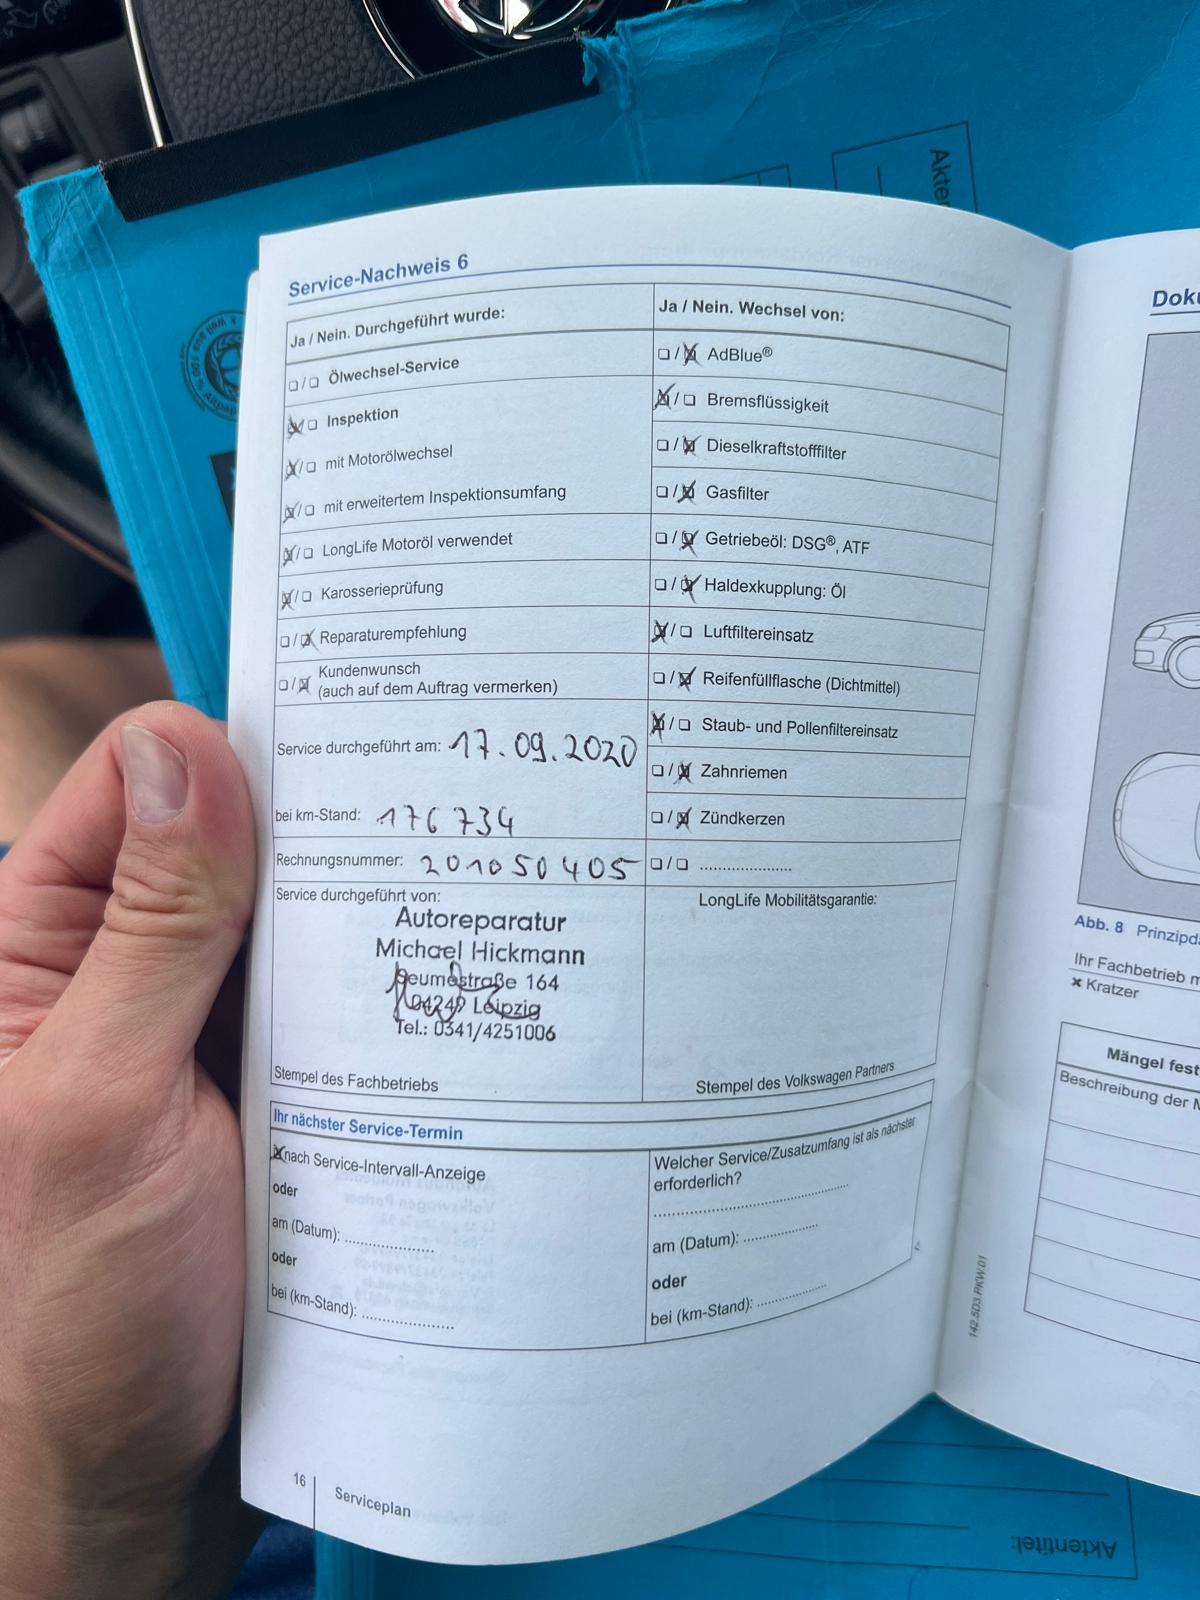 Akten
Service-Nachweis 6
Ja / Nein. Durchgeführt wurde:
☐ / ☐ Ölwechsel-Service
☒ / ☐ Inspektion
☒ / ☐ mit Motorölwechsel
☒ / ☐ mit erweitertem Inspektionsumfang
☒ / ☐ LongLife Motoröl verwendet
☒ / ☐ Karosserieprüfung
☐ / ☒ Reparaturempfehlung
☐ / ☒ Kundenwunsch
(auch auf dem Auftrag vermerken)
Service durchgeführt am: 17.09.2020
bei km-Stand: 176 734
Rechnungsnummer: 201050405
Service durchgeführt von:
Autoreparatur
Michael Hickmann
Seumestraße 164
04249 Leipzig
Tel.: 0341/4251006
Stempel des Fachbetriebs
Ja / Nein. Wechsel von:
☐ / ☒ AdBlue®
☒ / ☐ Bremsflüssigkeit
☐ / ☒ Dieselkraftstofffilter
☐ / ☒ Gasfilter
☐ / ☒ Getriebeöl: DSG®, ATF
☐ / ☒ Haldexkupplung: Öl
☒ / ☐ Luftfiltereinsatz
☐ / ☒ Reifenfüllflasche (Dichtmittel)
☒ / ☐ Staub- und Pollenfiltereinsatz
☐ / ☒ Zahnriemen
☐ / ☒ Zündkerzen
☐ / ☐ .....................
LongLife Mobilitätsgarantie:
Stempel des Volkswagen Partners
Ihr nächster Service-Termin
☒ nach Service-Intervall-Anzeige
oder
am (Datum): .....................
oder
bei (km-Stand): .....................
Welcher Service/Zusatzumfang ist als nächster
erforderlich?
.............................................
am (Datum): .................
oder
bei (km-Stand): .................
142.5D3.PKW.01
16
Serviceplan
Doku
Abb. 8 Prinzipda
Ihr Fachbetrieb m
× Kratzer
Mängel fest
Beschreibung der M
Aktentitel: